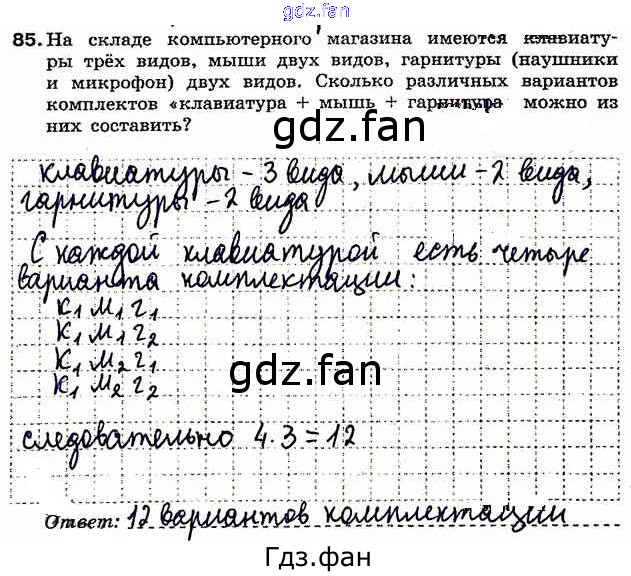 gdz.fan
85. На складе компьютерного магазина имеются клавиату-
ры трёх видов, мыши двух видов, гарнитуры (наушники
и микрофон) двух видов. Сколько различных вариантов
комплектов «клавиатура + мышь + гарнитура можно из
них составить?
gdz.fan
клавиатуры - 3 вида, мыши - 2 вида,
гарнитуры - 2 вида
С каждой клавиатурой есть четыре
варианта комплектации:
К₁ М₁ Г₁
К₁ М₁ Г₂
К₁ М₂ Г₁
К₁ М₂ Г₂
gdz.fan
следовательно 4·3=12
Ответ: 12 вариантов комплектации
Гдз.фан